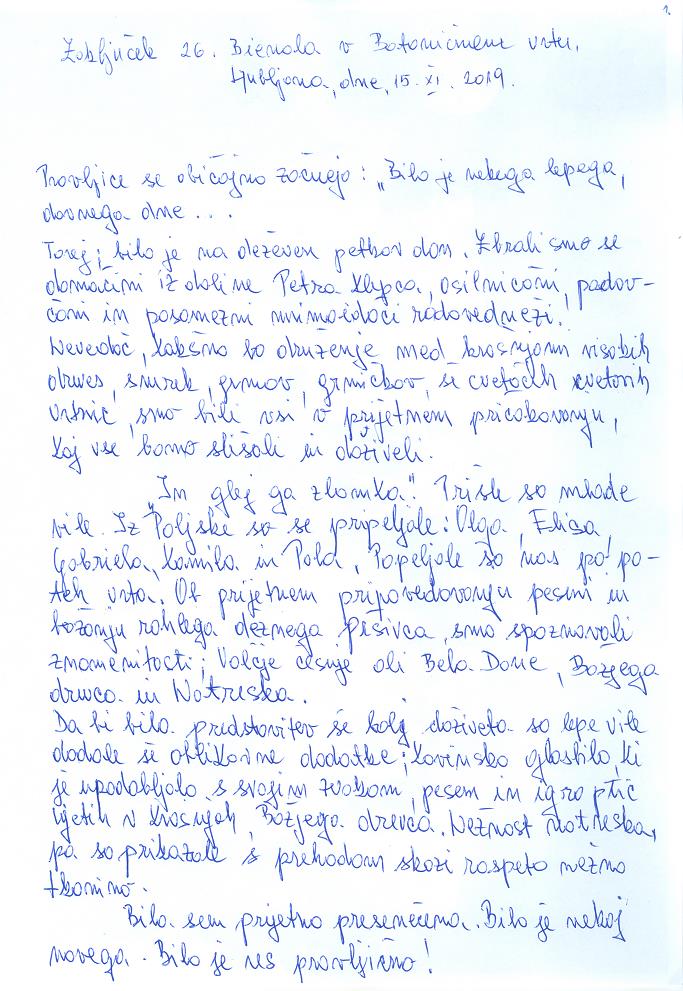 1.
Zaključek 26. Bienala v Botaničnem vrtu.
Ljubljana, dne, 15. XI. 2019.
Pravljice se običajno začnejo: „Bilo je nekega lepega,
davnega dne ...
Torej; bilo je na deževen petkov dan. Zbrali smo se
domačini iz doline Petra Klepca, osilničani, padov-
čani in posamezni mimoidoči radovedneži.
Nevedoč, kakšno bo druženje med krošnjami visokih
dreves, smrek, grmov, grmičkov, še cvetočih cvetovih
vrtnic, smo bili vsi v prijetnem pričakovanju,
kaj vse bomo slišali in doživeli.
„In glej ga zlomka". Prišle so mlade
vile. Iz Poljske so se pripeljale: Olga, Eliza,
Gabriela, Kamila in Pola, Popeljale so nas po po-
teh vrta. Ob prijetnem pripovedovanju pesmi in
božanju rahlega dežnega pisivca, smo spoznavali
znamenitosti; Volčje češnje ali Bela Done, Božjega
drevca in Natreska.
Da bi bila predstavitev še bolj doživeta so lepe vile
dodale še oblikovne dodatke; kovinsko glasbilo, ki
je upodabljalo s svojim zvokom, pesem in igro ptic
ujetih v krošnjah, Božjega drevca. Nežnost natreska,
pa so prikazale s prehodom skozi razpeto nežno
tkanino.
Bila sem prijetno presenečena. Bilo je nekaj
novega. Bilo je res pravljično!